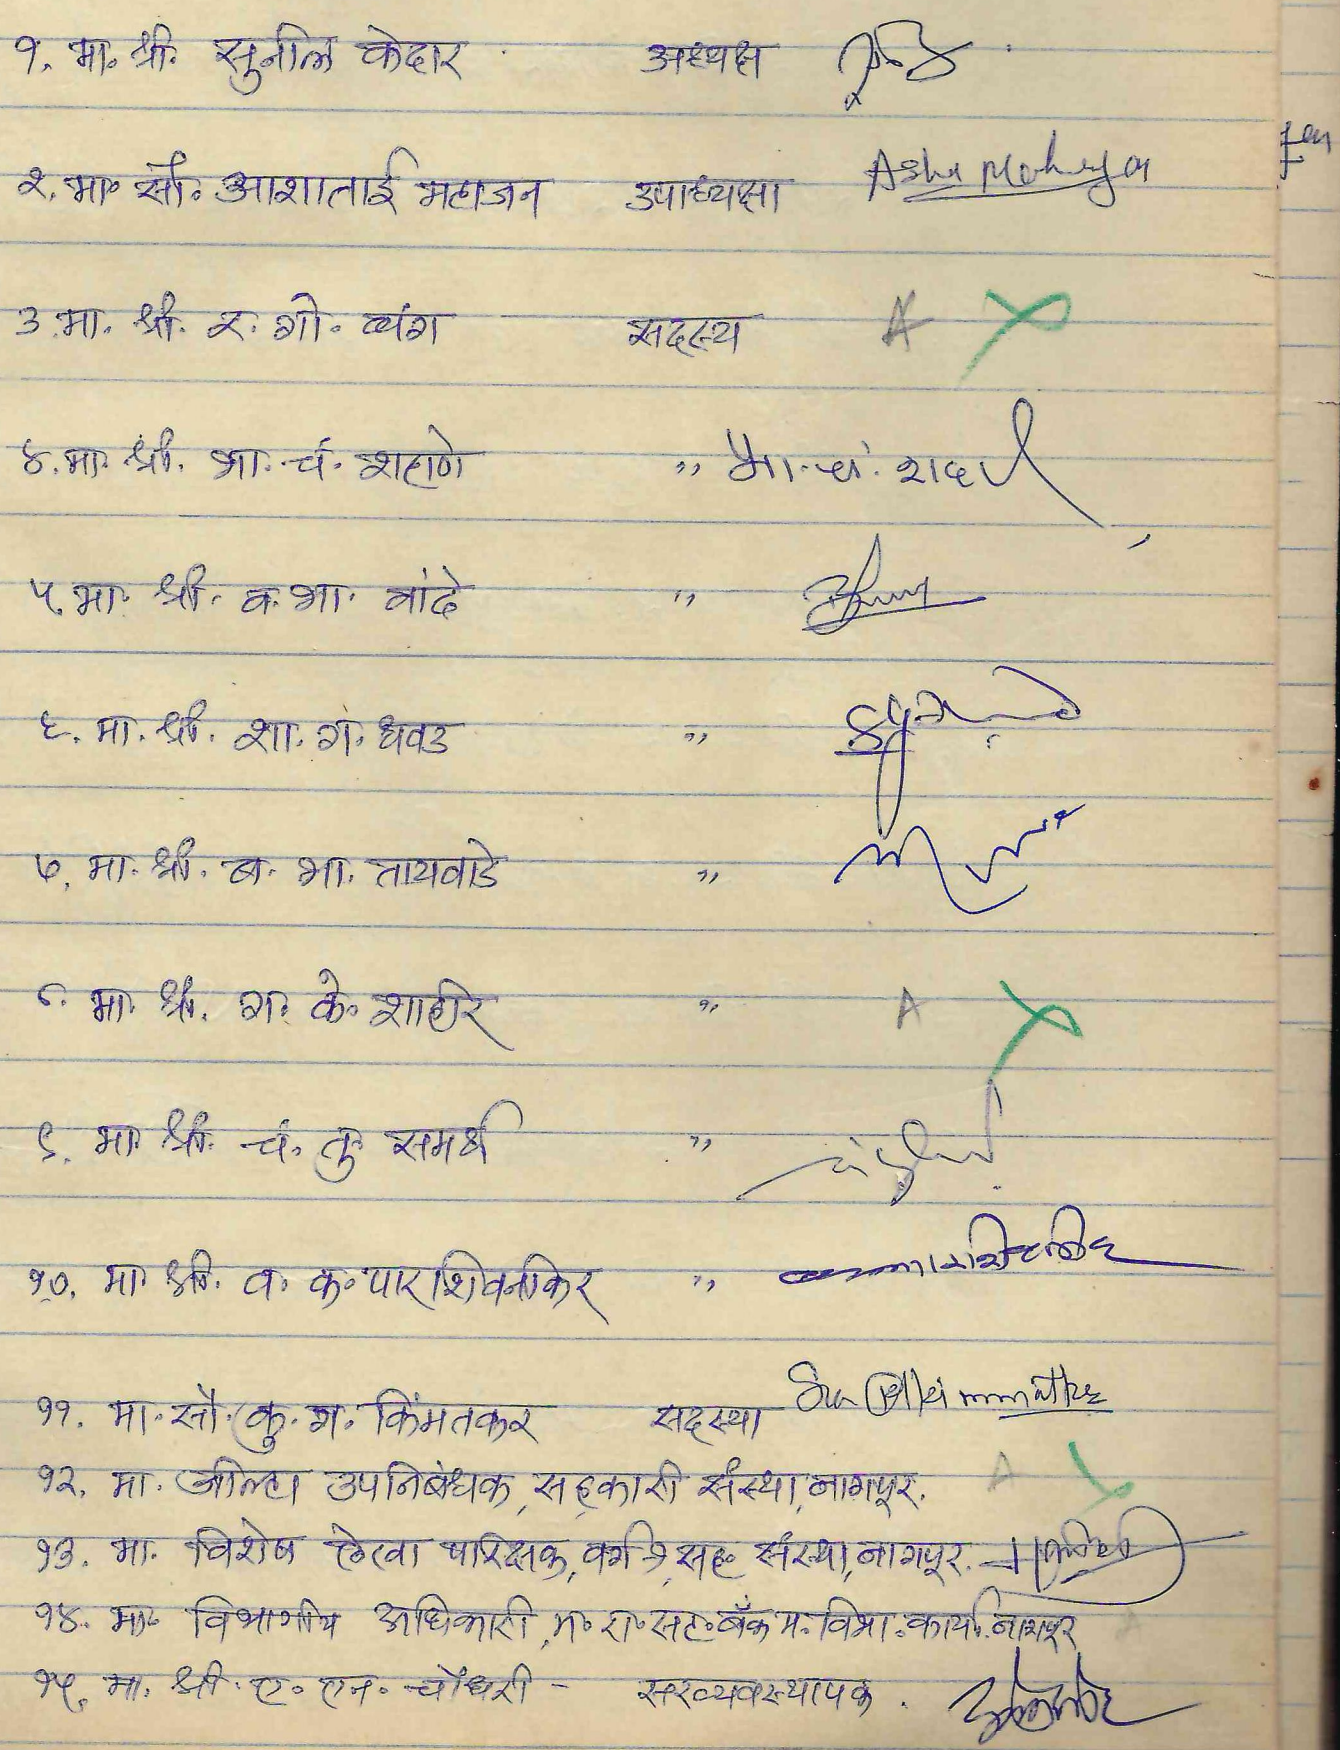 १. मा. श्री. सुनील केदार अध्यक्ष
२. मा. सौ. आशाताई महाजन उपाध्यक्षा Asha Mahajan
३. मा. श्री. र. गो. व्यंग सदस्य A
४. मा. श्री. भा. चं. शहाणे ,, भा. चं. शहाणे
५. मा. श्री. व. भा. बांदे ,,
६. मा. श्री. शा. गं. धवड ,,
७. मा. श्री. ब. भा. तायवाडे ,,
८. मा. श्री. ग. के. शाहीर ,, A
९. मा. श्री. चं. तु. समर्थ ,,
१०. मा. श्री. व. क. पारशिवनीकर ,,
११. मा. सौ. कु. ग. किंमतकर सदस्या
१२. मा. जील्हा उपनिबंधक, सहकारी संस्था, नागपूर. A
१३. मा. विशेष लेखा परिक्षक, वर्ग १, सह. संस्था, नागपूर.
१४. मा. विभागीय अधिकारी, म. रा. सह. बँक म. विभा. कार्या. नागपूर A
१५. मा. श्री. ए. एन. चौधरी - सरव्यवस्थापक.